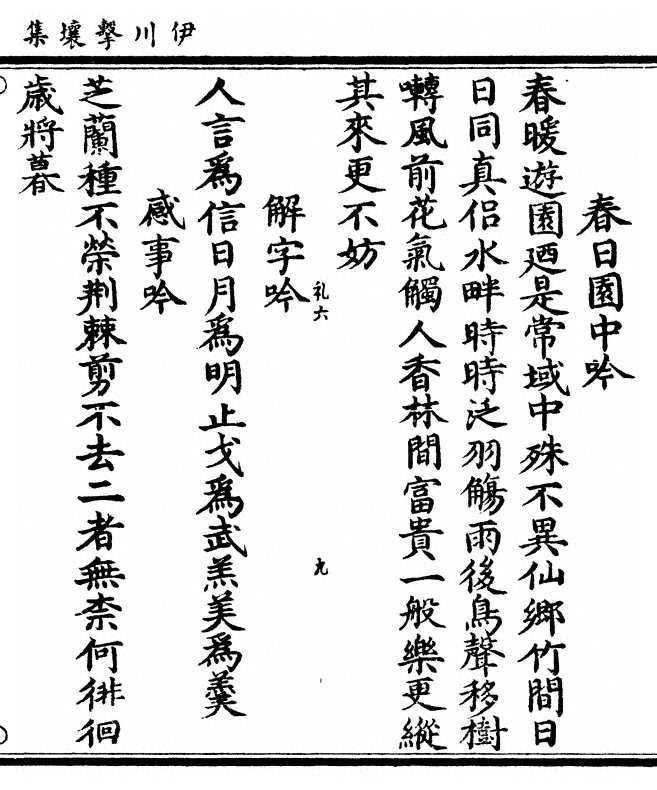 伊川擊壤集
春日園中吟
春暖遊園廼是常域中殊不異仙鄉竹間日
日同真侶水畔時時泛羽觴雨後鳥聲移樹
囀風前花氣觸人香林間富貴一般樂更縱
其來更不妨
解字吟
礼六
九
人言爲信日月爲明止戈爲武羔美爲羹
感事吟
芝蘭種不榮荆棘剪不去二者無柰何徘徊
歲將暮